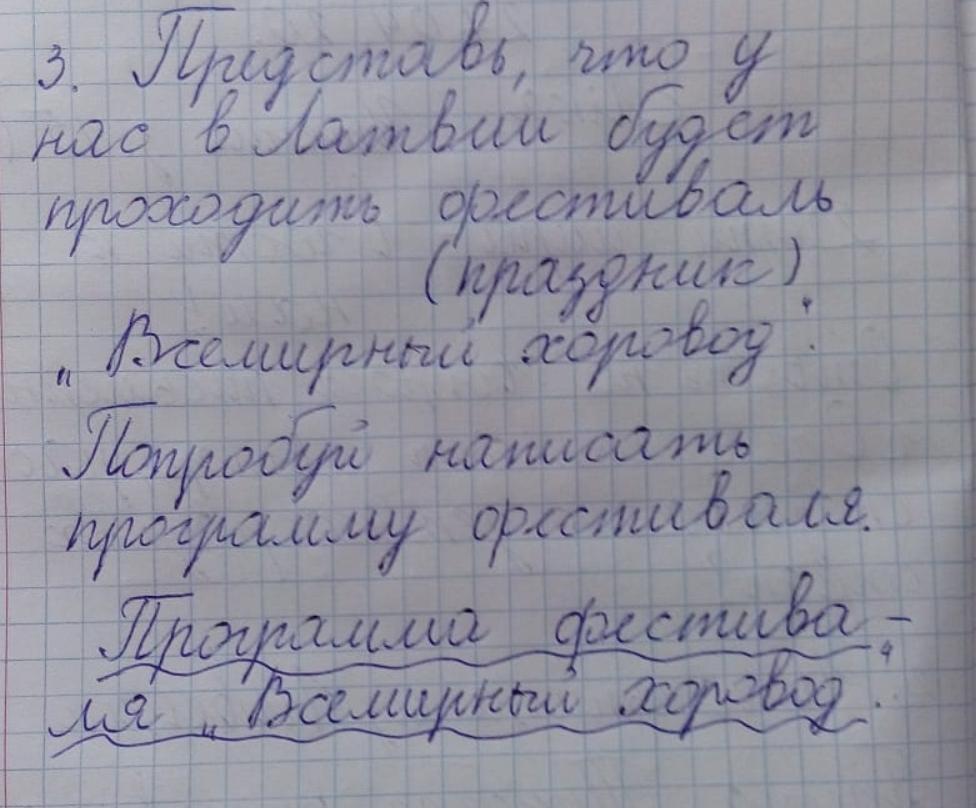 3. Представь, что у
нас в Латвии будет
проходить фестиваль
(праздник)
„Всемирный хоровод“.
Попробуй написать
программу фестиваля.
Программа фестива-
ля „Всемирный хоровод“.